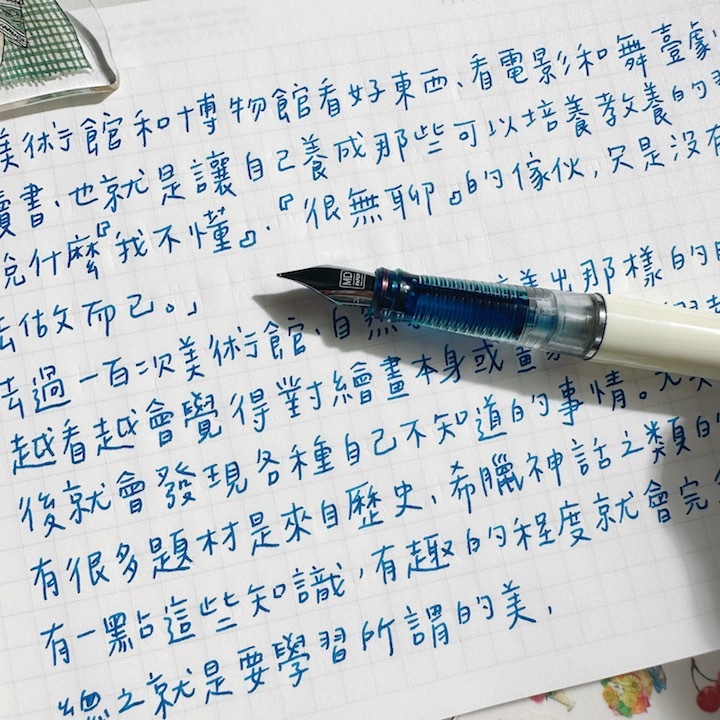 美術館和博物館看好東西、看電影和舞臺劇、
讀書、也就是讓自己養成那些可以培養教養的
說什麼『我不懂』、『很無聊』的傢伙，只是沒有
去做而已。」
去過一百次美術館、自然 出那樣的
越看越會覺得對繪畫本身或畫家
後就會發現各種自己不知道的事情。
有很多題材是來自歷史、希臘神話之類的
有一點這些知識，有趣的程度就會完
總之就是要學習所謂的美，
MD